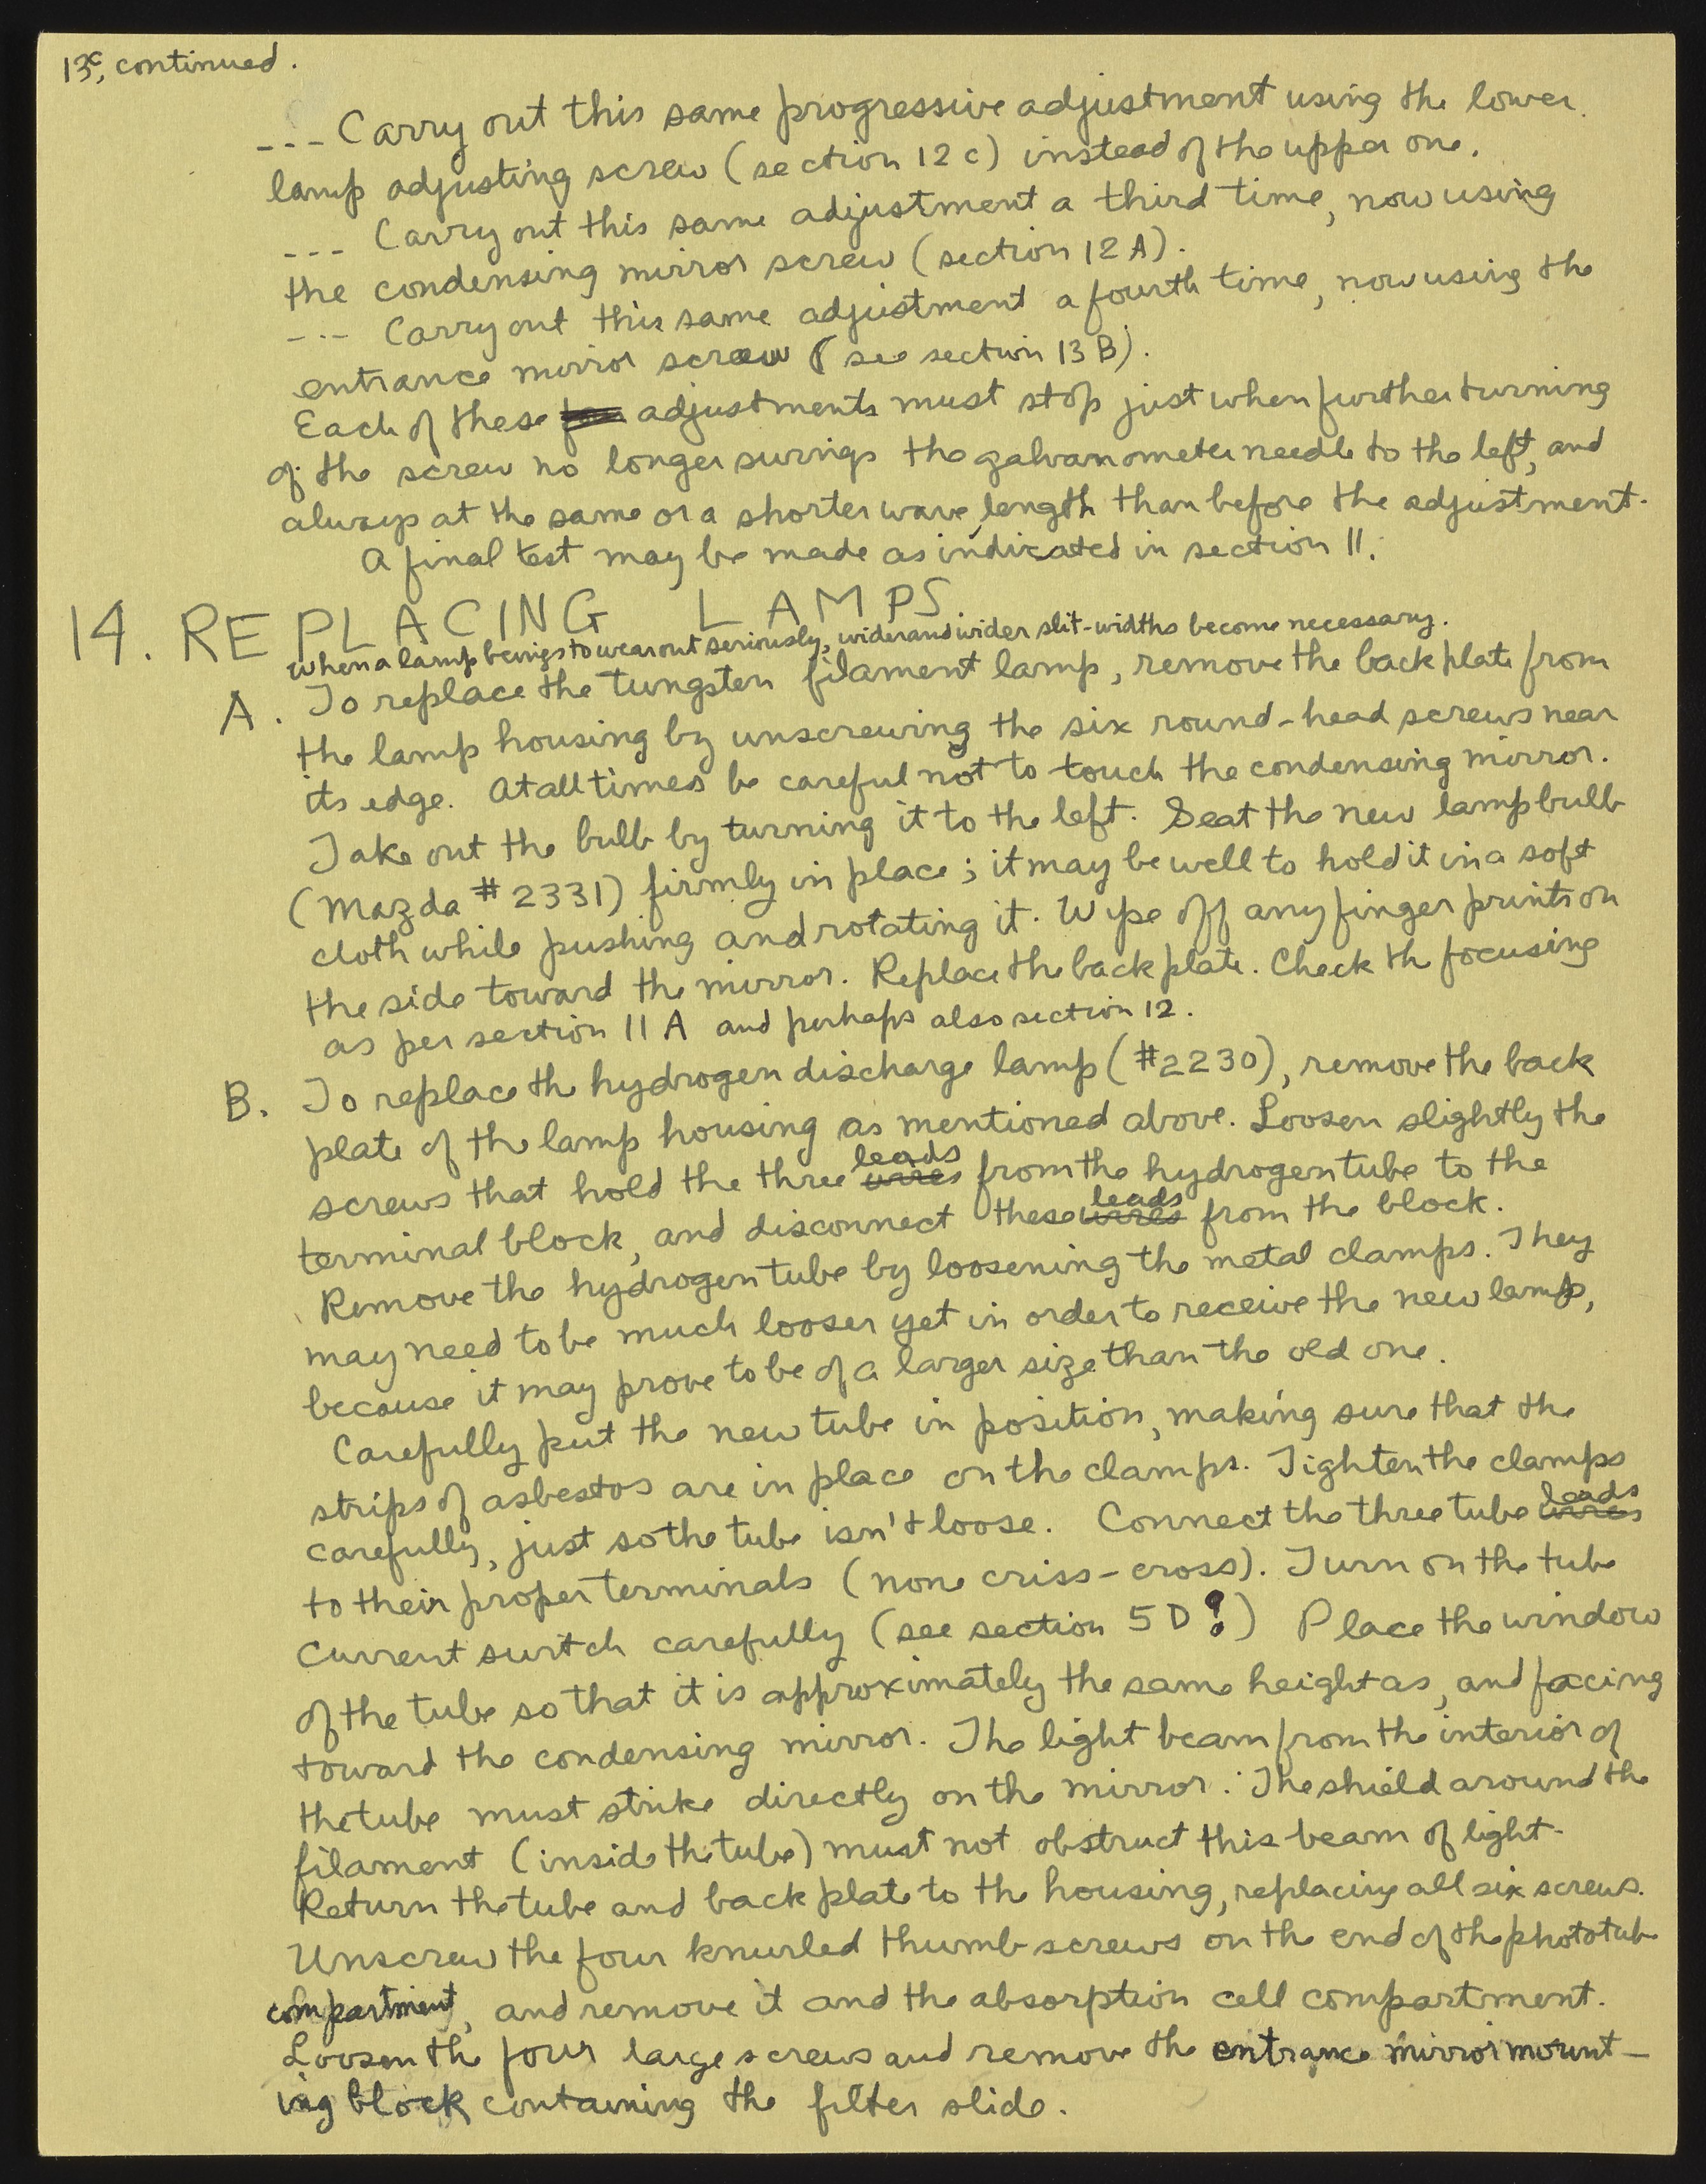 13c, continued.
--- Carry out this same progressive adjustment using the lower
lamp adjusting screw (section 12C) instead of the upper one.
--- Carry out this same adjustment a third time, now using
the condensing mirror screw (section 12A).
--- Carry out this same adjustment a fourth time, now using the
entrance mirror screw (see section 13B).
Each of these adjustments must stop just when further turning
of the screw no longer swings the galvanometer needle to the left, and
always at the same or a shorter wave length than before the adjustment.
A final test may be made as indicated in section 11.
14. REPLACING LAMPS
When a lamp beings to wear out seriously, wider and wider slit-widths become necessary.
A. To replace the tungsten filament lamp, remove the back plate from
the lamp housing by unscrewing the six round-head screws near
its edge. At all times be careful not to touch the condensing mirror.
Take out the bulb by turning it to the left. Seat the new lamp bulb
(Mazda #2331) firmly in place; it may be well to hold it in a soft
cloth while pushing and rotating it. Wipe off any finger prints on
the side toward the mirror. Replace the back plate. Check th focusing
as per section 11A and perhaps also section 12.
B. To replace th hydrogen discharge lamp (#2230), remove the back
plate of the lamp housing as mentioned above. Loosen slightly the
screws that hold the three wires leads from the hydrogen tube to the
terminal block, and disconnect these wires leads from the block.
Remove the hydrogen tube by loosening the metal clamps. They
may need to be much looser yet in order to receive the new lamp,
because it may prove to be of a larger size than the old one.
Carefully put the new tube in position, making sure that the
strips of asbestos are in place on the clamps. Tighten the clamps
carefully, just so the tube isn't loose. Connect the three tube wires leads
to their proper terminals (none criss-cross). Turn on the tube
current switch carefully (see section 5D?) Place the window
of the tube so that it is approximately the same height as, and facing
toward the condensing mirror. The light beam from the interior of
the tube must strike directly on the mirror. The shield around the
filament (inside the tube) must not obstruct this beam of light.
Return the tube and back plate to th housing, replacing all six screws.
Unscrew the four knurled thumb screws on the end of the phototube
compartment, and remove it and the absorption cell compartment.
Loosen th four large screws and remove the entrance mirror mount-
ing block containing the filter slide.